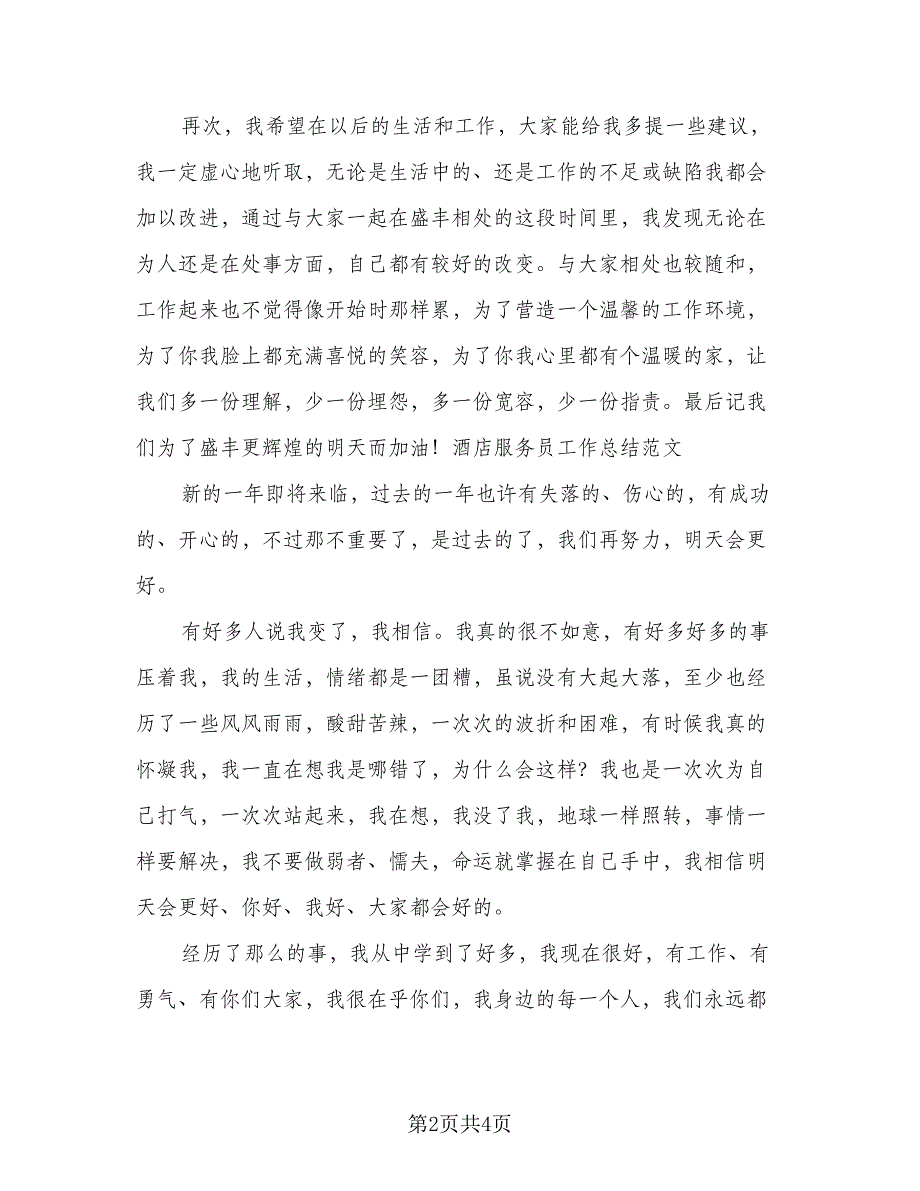 再次，我希望在以后的生活和工作，大家能给我多提一些建议，
我一定虚心地听取，无论是生活中的、还是工作的不足或缺陷我都会
加以改进，通过与大家一起在盛丰相处的这段时间里，我发现无论在
为人还是在处事方面，自己都有较好的改变。与大家相处也较随和，
工作起来也不觉得像开始时那样累，为了营造一个温馨的工作环境，
为了你我脸上都充满喜悦的笑容，为了你我心里都有个温暖的家，让
我们多一份理解，少一份埋怨，多一份宽容，少一份指责。最后记我
们为了盛丰更辉煌的明天而加油！酒店服务员工作总结范文
新的一年即将来临，过去的一年也许有失落的、伤心的，有成功
的、开心的，不过那不重要了，是过去的了，我们再努力，明天会更
好。
有好多人说我变了，我相信。我真的很不如意，有好多好多的事
压着我，我的生活，情绪都是一团糟，虽说没有大起大落，至少也经
历了一些风风雨雨，酸甜苦辣，一次次的波折和困难，有时候我真的
怀凝我，我一直在想我是哪错了，为什么会这样？我也是一次次为自
己打气，一次次站起来，我在想，我没了我，地球一样照转，事情一
样要解决，我不要做弱者、懦夫，命运就掌握在自己手中，我相信明
天会更好、你好、我好、大家都会好的。
经历了那么的事，我从中学到了好多，我现在很好，有工作、有
勇气、有你们大家，我很在乎你们，我身边的每一个人，我们永远都
第2页共4页